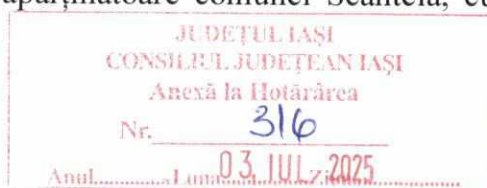 aparținătoare comunei Scânteia, cu
JUDEȚUL IAȘI
CONSILIUL JUDEȚEAN IAȘI
Anexă la Hotărârea
Nr. 316
Anul............Luna 03. IUL. Ziua 2025............